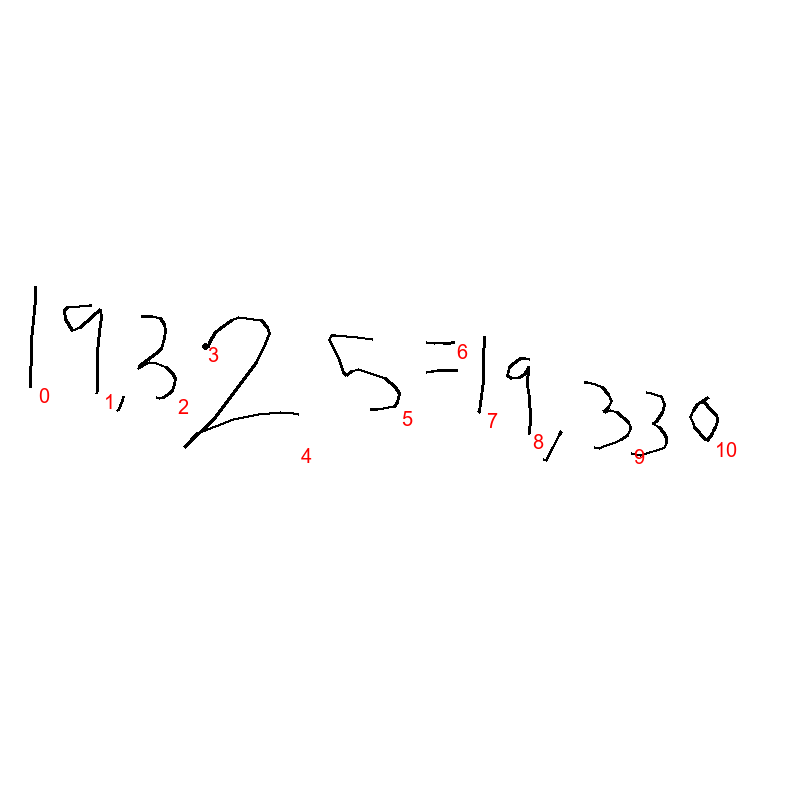 19,325=19,330
0 1 2 3 4 5 6 7 8 9 10